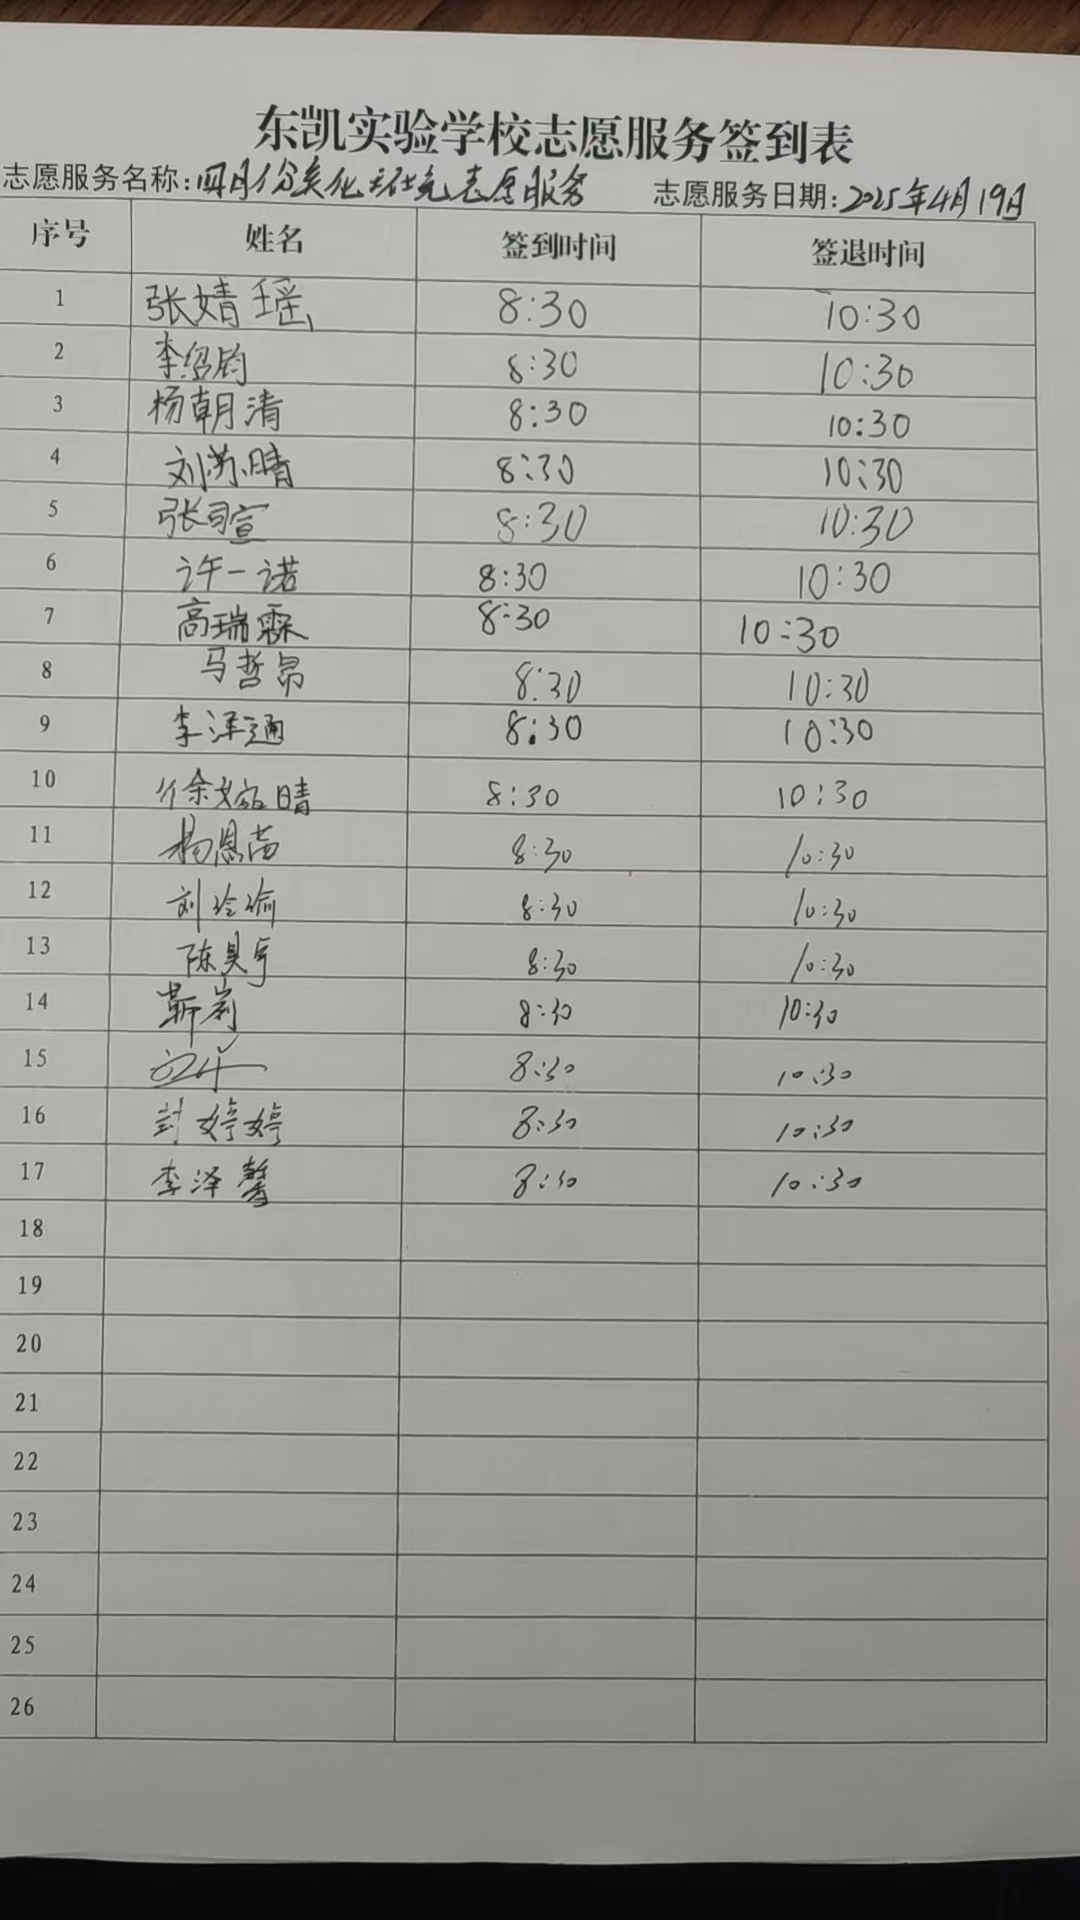 东凯实验学校志愿服务签到表
志愿服务名称:四月份美化环境志愿服务 志愿服务日期:2025年4月19日
序号 姓名 签到时间 签退时间
1 张婧瑶 8:30 10:30
2 李绍钧 8:30 10:30
3 杨朝清 8:30 10:30
4 刘苏晴 8:30 10:30
5 张司宣 8:30 10:30
6 许一诺 8:30 10:30
7 高瑞霖 8:30 10:30
8 马哲昂 8:30 10:30
9 李泽通 8:30 10:30
10 徐婉晴 8:30 10:30
11 杨恩茜 8:30 10:30
12 刘泠瑜 8:30 10:30
13 陈昊宇 8:30 10:30
14 靳岚 8:30 10:30
15 8:30 10:30
16 封婷婷 8:30 10:30
17 李泽馨 8:30 10:30
18
19
20
21
22
23
24
25
26